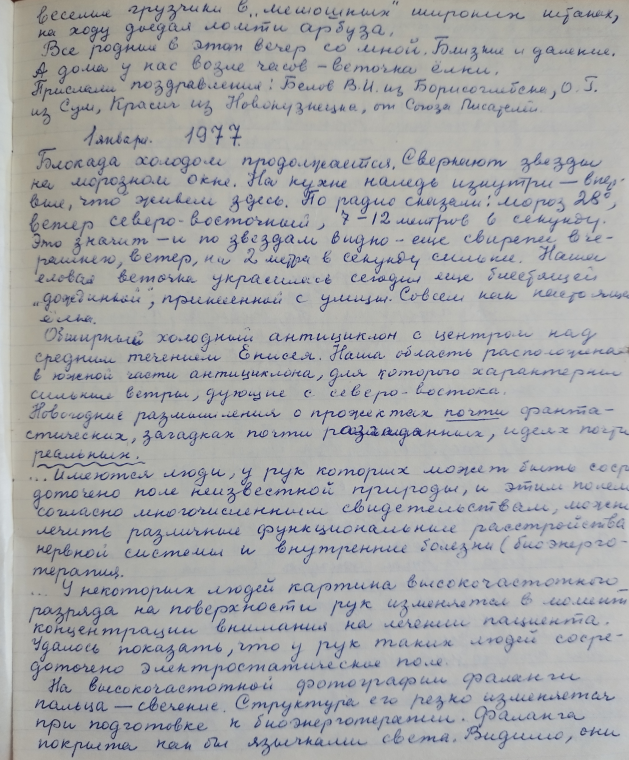 веселые грузчики в „мешошных" широких штанах,
на ходу доедая ломти арбуза.
Все родные в этот вечер со мной. Близкие и далекие.
А дома у нас возле часов – веточка ёлки.
Прислали поздравления: Белов В.И. из Борисоглебска, О.Г.
из Сум, Красич из Новокузнецка, от Союза Писателей.
1 января. 1977.
Блокада холодом продолжается. Сверкают звезды
на морозном окне. На кухне наледь изнутри – впер-
вые, что живем здесь. По радио сказали: мороз 28°,
ветер северо-восточный, 7–12 метров в секунду.
Это значит – и по звездам видно – еще свирепее вче-
рашнего, ветер, на 2 метра в секунду сильнее. Наша
еловая веточка украсилась сегодня еще блестящей
„дождинкой", принесенной с улицы. Совсем как настоящая
ёлка.
Обширный холодный антициклон с центром над
средним течением Енисея. Наша область расположена
в южной части антициклона, для которого характерны
сильные ветры, дующие с северо-востока.
Новогодние размышления о прожектах почти фанта-
стических, загадках почти разгаданных, идеях почти
реальных.
... Имеются люди, у рук которых может быть соср-
доточено поле неизвестной природы, и этим полем
согласно многочисленным свидетельствам, можно
лечить различные функциональные расстройства
нервной системы и внутренние болезни (биоэнерго-
терапия.
... У некоторых людей картина высокочастотного
разряда на поверхности рук изменяется в момент
концентрации внимания на лечении пациента.
Удалось показать, что у рук таких людей сосре-
доточено электростатическое поле.
На высокочастотной фотографии фаланги
пальца – свечение. Структура его резко изменяется
при подготовке к биоэнерготерапии. Фаланга
покрыта как бы язычками света. Видимо, они